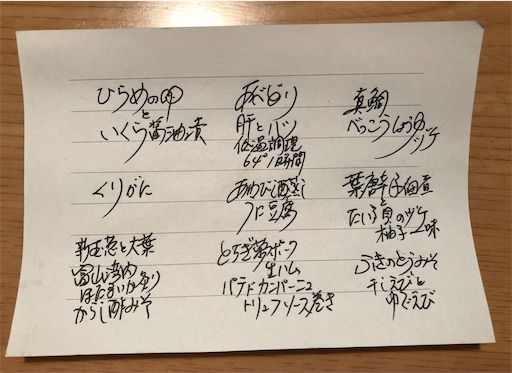 ひらめの卵
と
いくら醤油漬
くりがに
新玉葱と大葉
富山湾内
ほたるいか釣り
からし酢みそ
あべどり
肝とハツ
低温調理
64° 1時間
あわび酒蒸し
うに豆腐
とちぎ夢ポーク
生ハム
パテドカンパーニュ
トリュフソース巻き
真鯛
べっこうしょうゆ
ヅケ
葉唐辛子佃煮
と
たいら貝のヅケ
柚子一味
ふきのとうみそ
干しえびと
ゆでえび